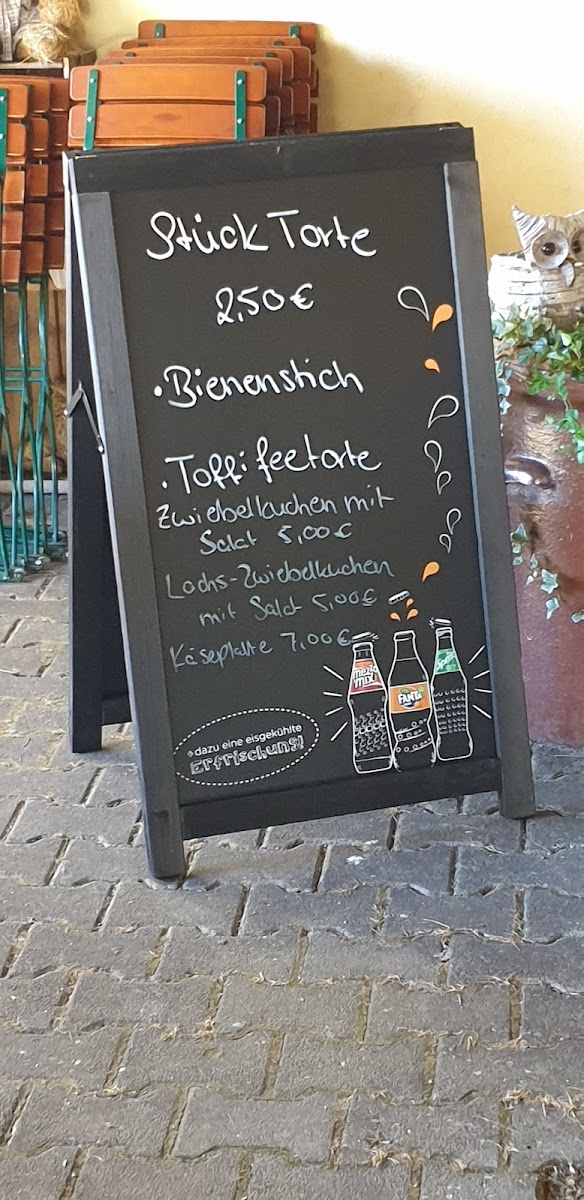 Stück Torte
2,50 €
• Bienenstich
• Toffifeetorte
Zwiebelkuchen mit
Salat 5,00 €
Lachs-Zwiebelkuchen
mit Salat 5,00 €
Käseplatte 7,00 €
mezzo
mix
FANTA
Sprite
dazu eine eisgekühlte
Erfrischung!